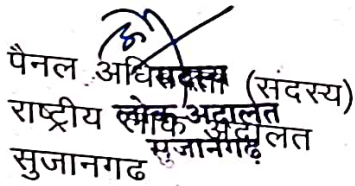 पैनल अधिवक्ता (सदस्य)
सदस्य
राष्ट्रीय लोक अदालत
लोक अदालत
सुजानगढ
सुजानगढ़